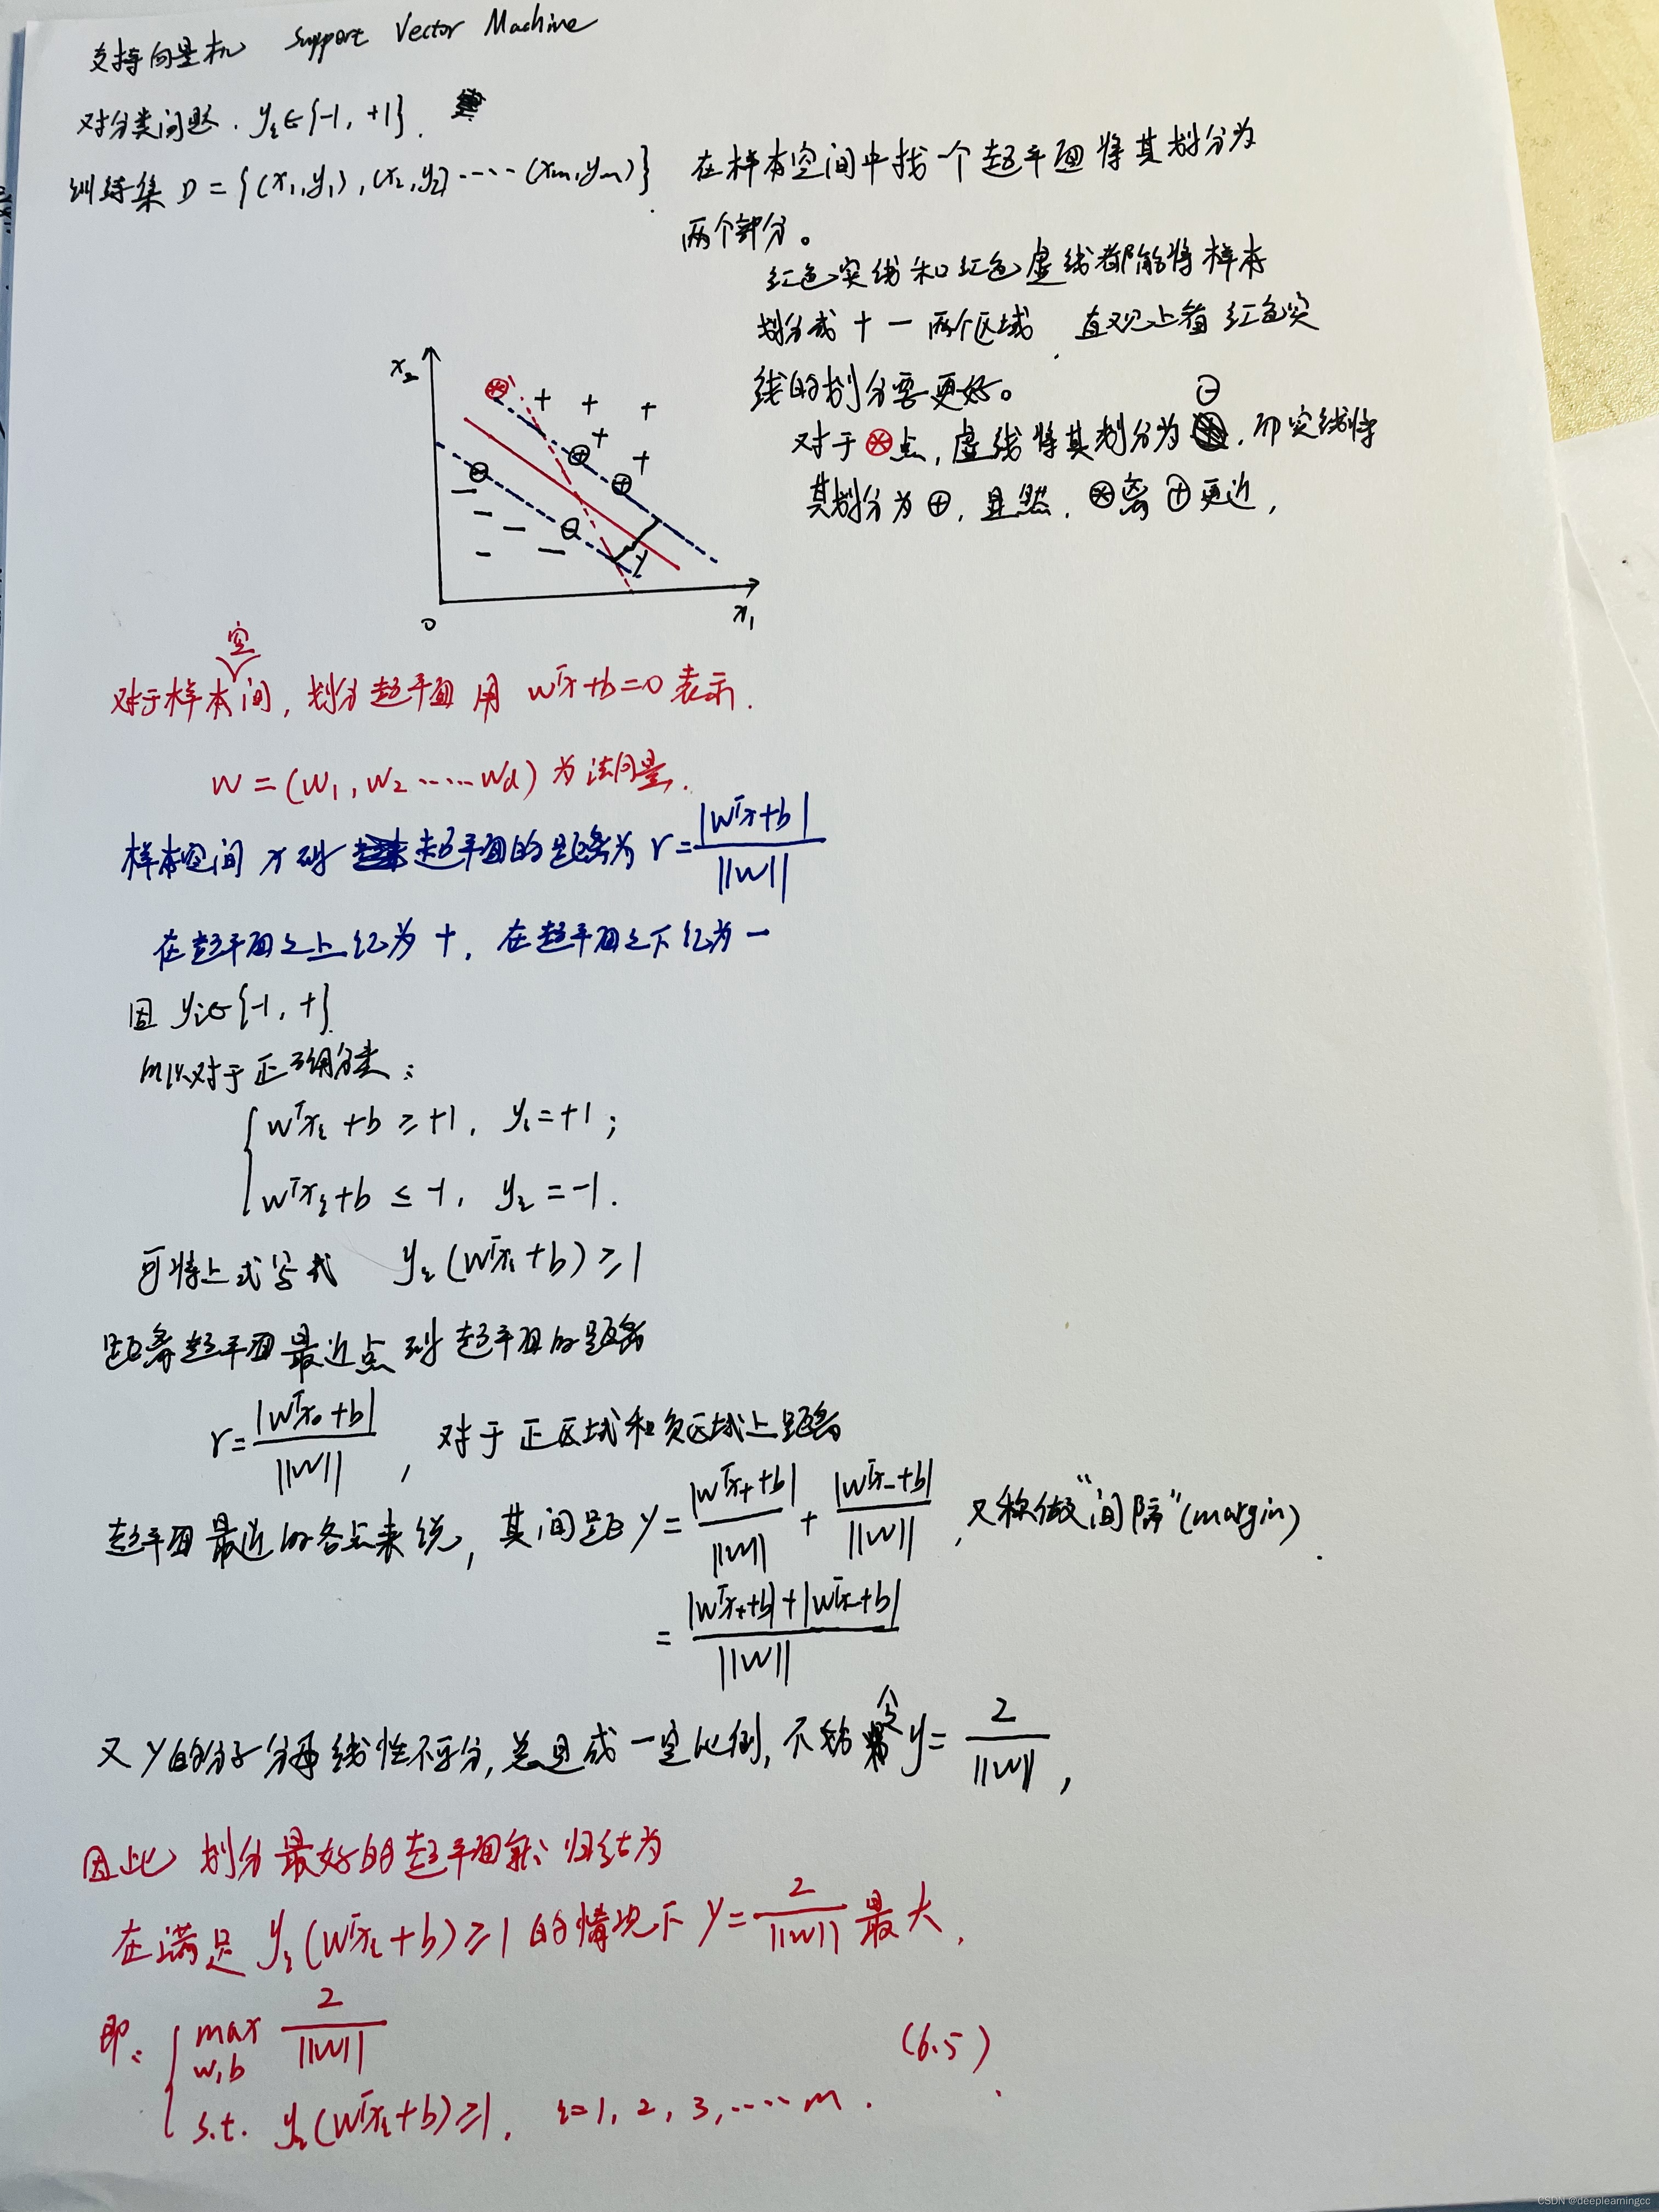 支持向量机 Support Vector Machine
对分类问题. yᵢ∈{-1, +1}.
训练集 D = {(x₁,y₁), (x₂,y₂) ····· (xₘ,yₘ)} 在样本空间中找一个超平面将其划分为
两个部分。
红色实线和红色虚线都能将样本
划分成 + - 两个区域. 直观上看 红色实
线的划分要更好。
对于 ⊗ 点, 虚线将其划分为 ⊖, 而实线将
其划分为 ⊕, 显然, ⊗离 ⊕ 更近,
x₂
γ
0
x₁
对于样本空间, 划分超平面用 wᵀx+b=0 表示.
w = (w₁, w₂ ······ w_d) 为法向量.
样本空间 x 到 超平面的距离为 r = |wᵀx+b| / ||w||
在超平面之上记为 +, 在超平面之下记为 -
因 yᵢ∈{-1, +}
所以对于正确分类:
{ wᵀxᵢ + b ≥ +1, yᵢ = +1;
wᵀxᵢ + b ≤ -1, yᵢ = -1.
可将上式写成 yᵢ(wᵀxᵢ + b) ≥ 1
距离超平面最近点到超平面的距离
r = |wᵀx₀ + b| / ||w||, 对于正区域和负区域上距离
超平面最近的各点来说, 其间距 γ = |wᵀx₊+b| / ||w|| + |wᵀx₋+b| / ||w||, 又称做"间隔"(margin).
= (|wᵀx₊+b| + |wᵀx₋+b|) / ||w||
又 γ 的分子分母线性不可分, 总是成一定比例, 不妨令 γ = 2 / ||w||,
因此 划分最好的超平面就归结为
在满足 yᵢ(wᵀxᵢ+b) ≥ 1 的情况下 γ = 2 / ||w|| 最大,
即: { max w,b 2 / ||w|| (6.5)
s.t. yᵢ(wᵀxᵢ+b) ≥ 1, i = 1, 2, 3, ····· m.
CSDN @deeplearningcc